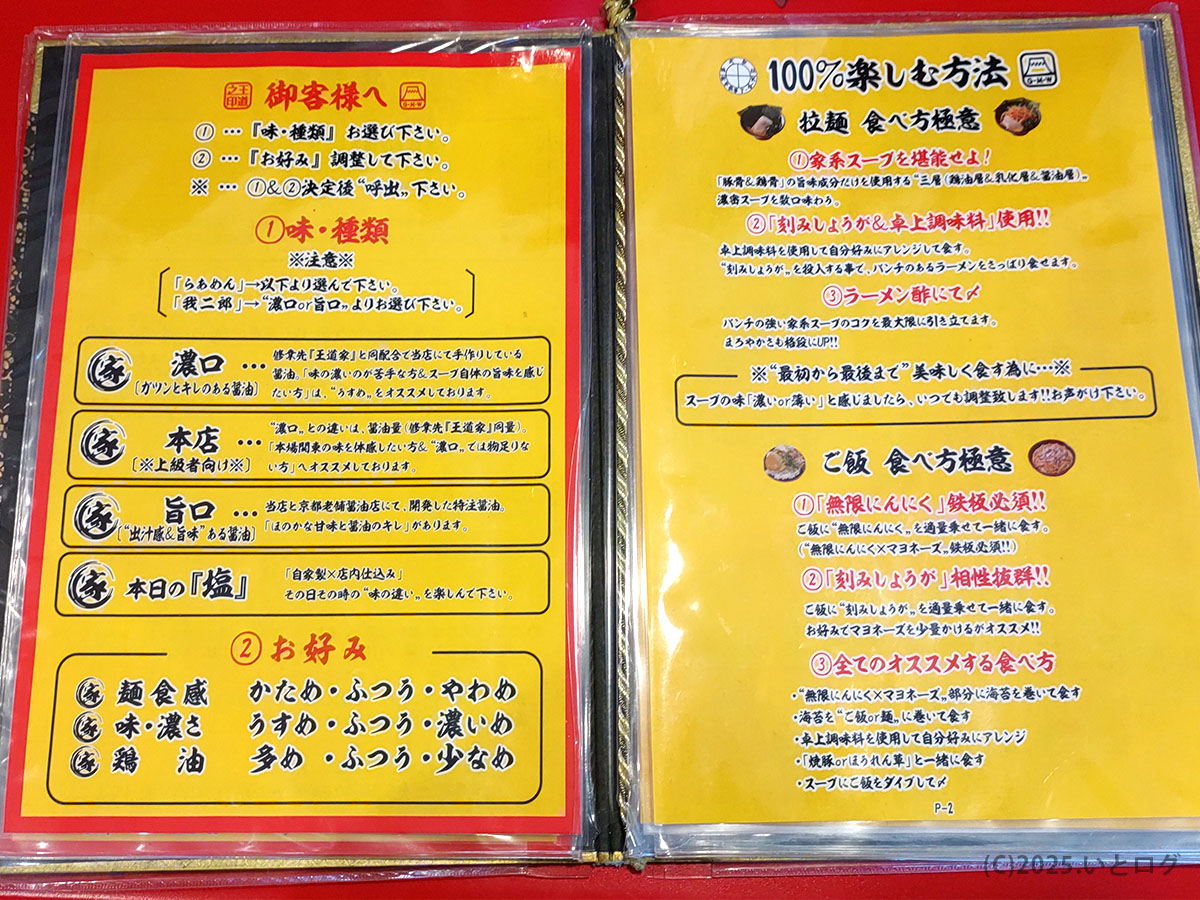 王道之印
御客様へ
G·M·W
① … 『味・種類』 お選び下さい。
② … 『お好み』 調整して下さい。
※ … ①&②決定後"呼出„下さい。
①味・種類
※注意※
「らぁめん」→以下より選んで下さい。
「我二郎」→"濃口or旨口„よりお選び下さい。
家 濃口 …
〔ガツンとキレのある醤油〕
修業先『王道家』と同配合で当店にて手作りしている
醤油。「味の濃いのが苦手な方&スープ自体の旨味を感じ
たい方」は、"うすめ„をオススメしております。
家 本店 …
〔※上級者向け※〕
"濃口„との違いは、醤油量(修業先『王道家』同量)。
「本場関東の味を体感したい方&"濃口„では物足りな
い方」へオススメしております。
家 旨口 …
〔"出汁感&旨味"ある醤油〕
当店と京都老舗醤油店にて、開発した特注醤油。
「ほのかな甘味と醤油のキレ」があります。
家 本日の『塩』
「自家製×店内仕込み」
その日その時の"味の違い„を楽しんで下さい。
②お好み
家 麺食感 かため・ふつう・やわめ
家 味・濃さ うすめ・ふつう・濃いめ
家 鶏 油 多め ・ふつう・少なめ
100%楽しむ方法
G·M·W
拉麺 食べ方極意
①家系スープを堪能せよ!
「豚骨&鶏骨」の旨味成分だけを使用する"三層(鶏油層&乳化層&醤油層)„
濃密スープを数口味わう。
②「刻みしょうが&卓上調味料」使用!!
卓上調味料を使用して自分好みにアレンジして食す。
"刻みしょうが„を投入する事で、パンチのあるラーメンをさっぱり食せます。
③ラーメン酢にて〆
パンチの強い家系スープのコクを最大限に引き立てます。
まろやかさも格段にUP!!
※"最初から最後まで"美味しく食す為に…※
スープの味「濃いor薄い」と感じましたら、いつでも調整致します!!お声がけ下さい。
ご飯 食べ方極意
①「無限にんにく」鉄板必須!!
ご飯に"無限にんにく„を適量乗せて一緒に食す。
("無限にんにく×マヨネーズ„鉄板必須!!)
②「刻みしょうが」相性抜群!!
ご飯に"刻みしょうが„を適量乗せて一緒に食す。
お好みでマヨネーズを少量かけるがオススメ!!
③全てのオススメする食べ方
・"無限にんにく×マヨネーズ„部分に海苔を巻いて食す
・海苔を"ご飯or麺„に巻いて食す
・卓上調味料を使用して自分好みにアレンジ
・「焼豚orほうれん草」と一緒に食す
・スープにご飯をダイブして〆
P-2
(C)2025.いとログ